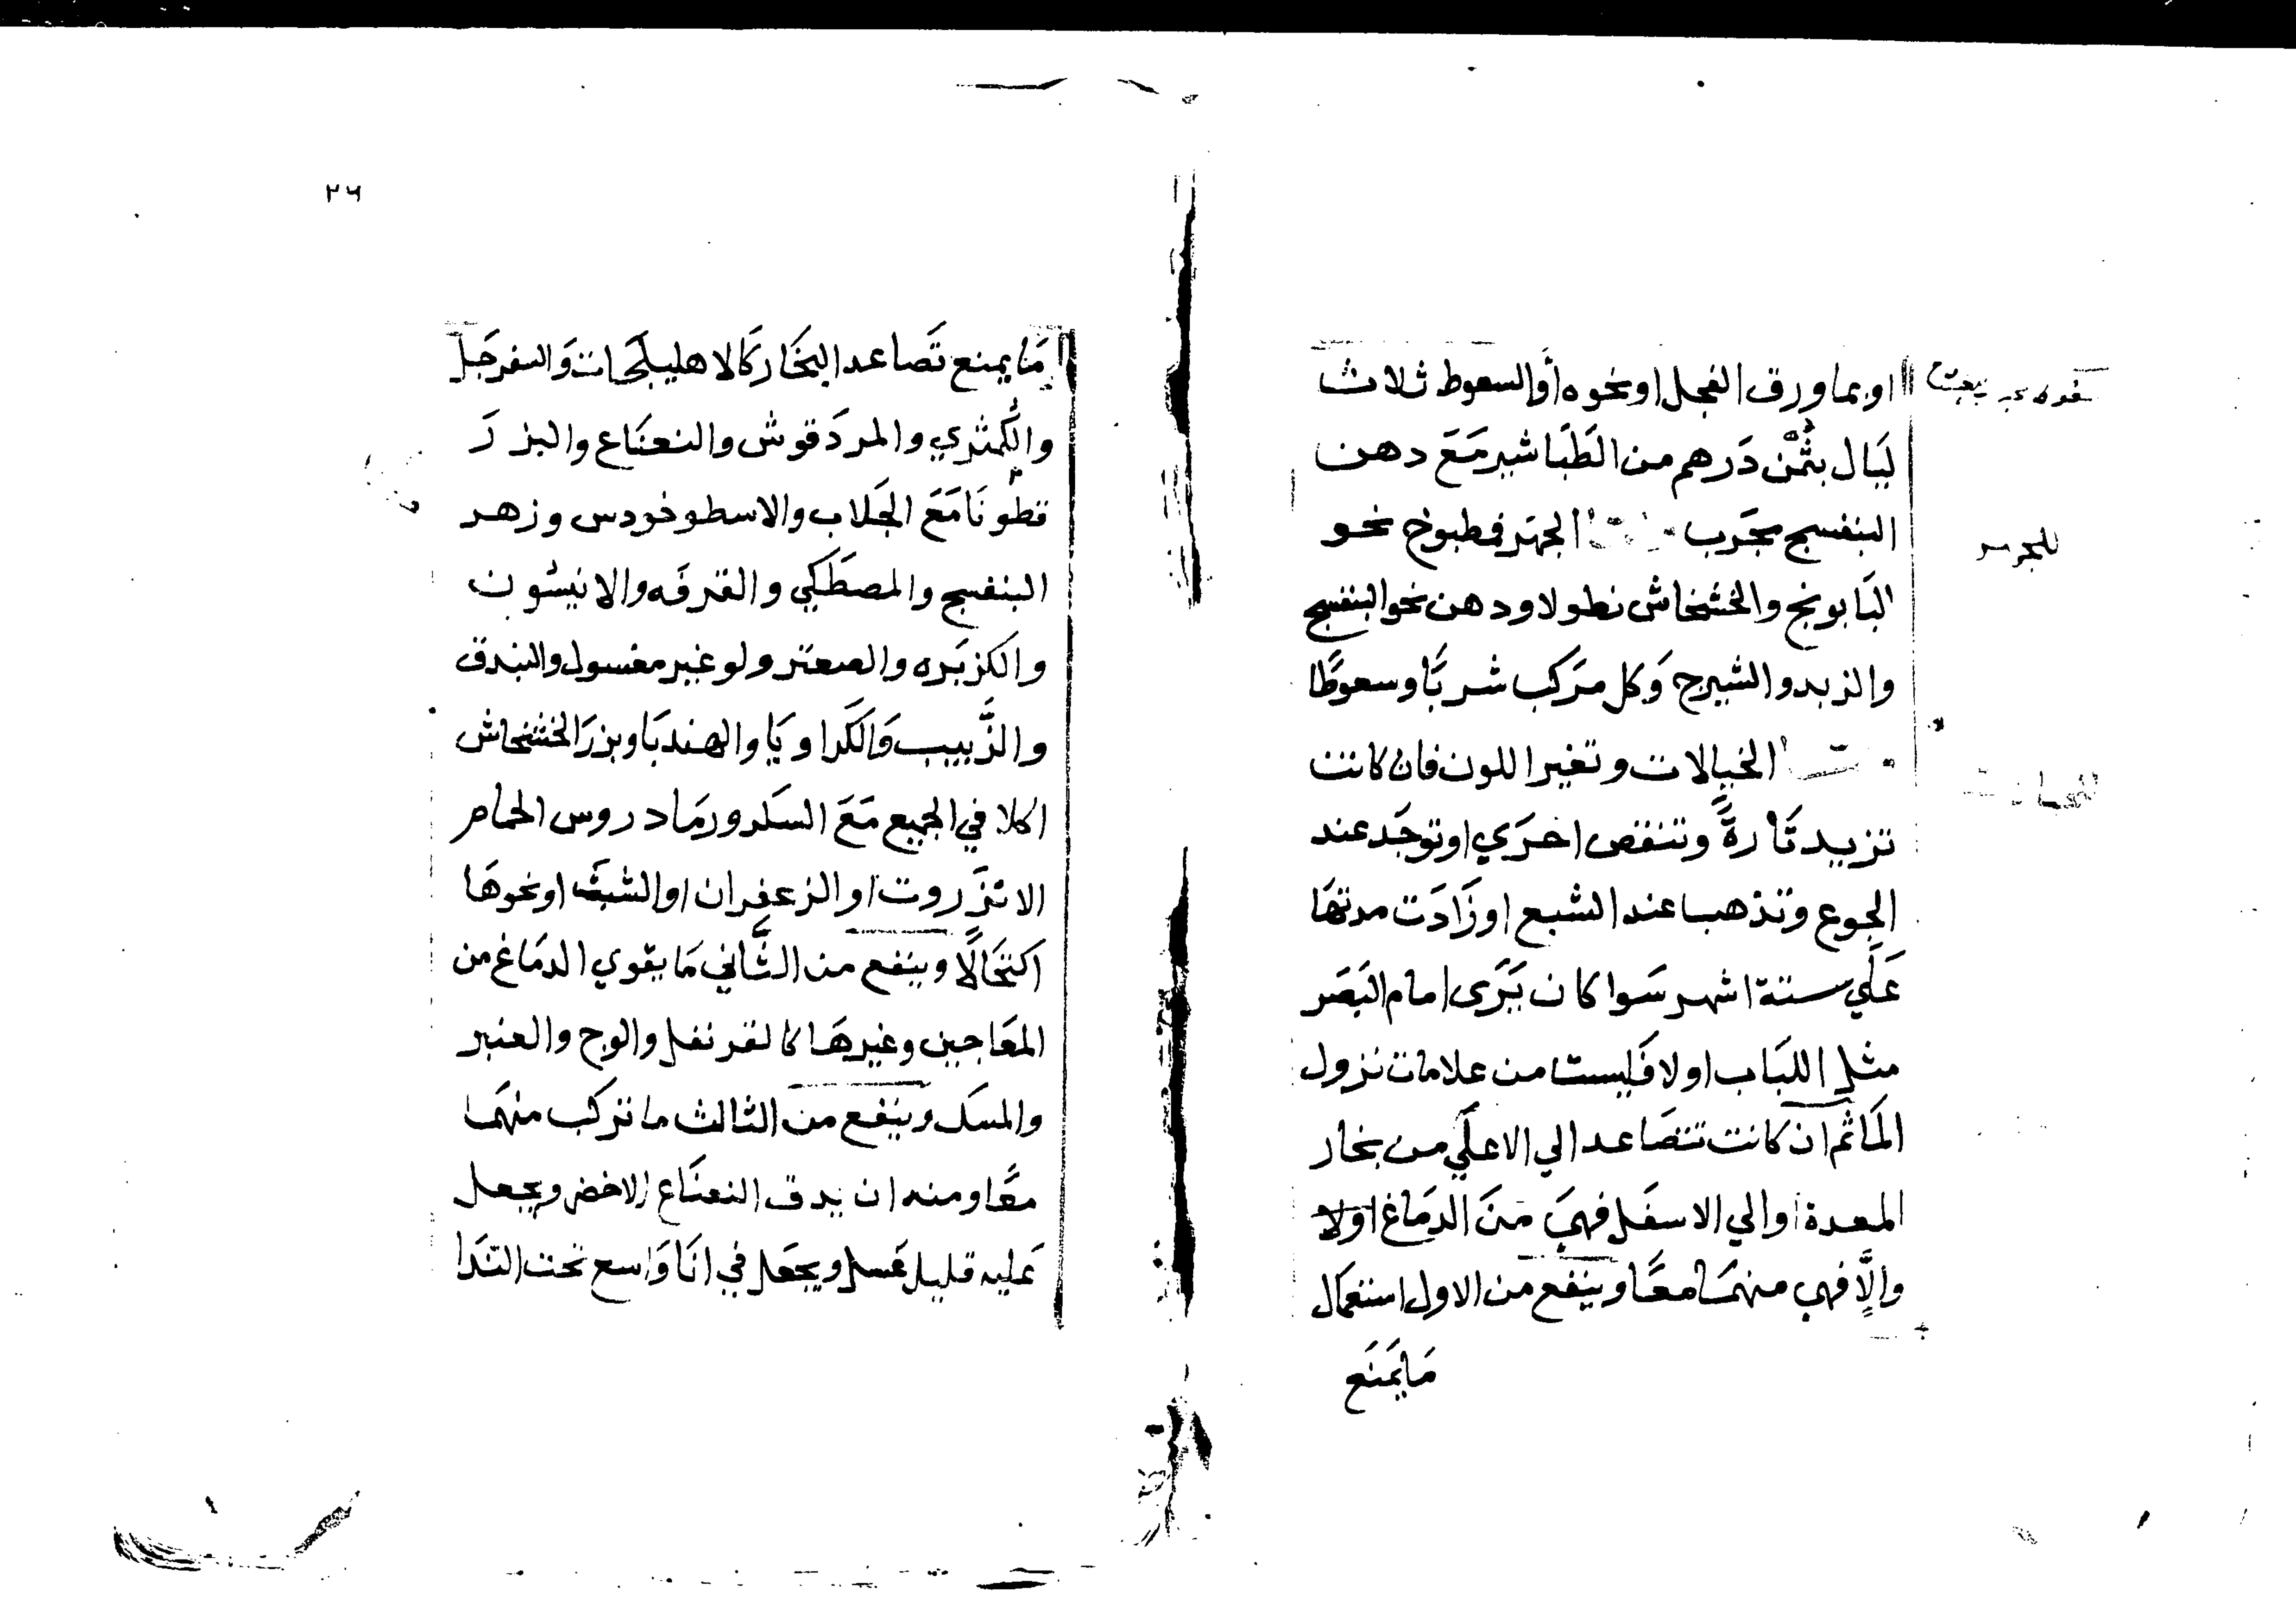 او بما ورق الفجل او نحوه أو السعوط ثلاث
لَيَال بثُمْن دَرهم من الطَبَاشير مَعَ دهن
البنفسج مجَرب الجهَر فمطبوخ نحو
البَابونج والخشخاش نطولا ودهن نحو البنفسج
والزبد والشيرج وَكل مرَكب شربًا وسعوطًا
الخيالات وتغير اللون فان كانت
تزيد تَارةً وتنقص اخرَي او توجَد عند
الجوع وتذهب عند الشبع او زَادَت مدتهَا
عَلَي ستة اشهر سَوا كان يَرَى امام البَصَر
مثل اللبَاب او لا فَليست من علامات نزول
المَا ثم ان كانت تتصَاعد الي الاعلَي من بخار
المعدة او الي الاسفَل فهيَ منَ الدمَاغ اولا
والَّا فهي منهمَا معًا وينفع من الاول استعمَال
مَا يَمنَع
للجهر
٢٦
مَا يمنع تَصاعد البخَار كَالاهليلَجات وَالسفرجَل
والكُمثري والمردَقوش والنعنَاع والبزرَ
قطونَا مَعَ الجَلاب والاسطوخودس وزهر
البنفسج والمصطَكي والقرفَه والانيسون
والكزبَره والصعتر ولو غير مغسول والبندق
والزَّبيب وَالكَراويَا والهندبَا وبزرَ الخشخاش
اكلا في الجميع مَعَ السكر ورمَاد روس الحمام
الانزَروت او الزعفران او الشبَث او نحوهَا
اكتحَالًا وينفع من الثَّاني مَا يقوي الدمَاغ من
المعَاجين وغيرهَا كالقرنفل والوج والعنبر
والمسك وينفع من الثالث ما تركب منهمَا
معًا ومنه ان يدق النعنَاع الاخضر ويجعل
عَليه قليل عَسل ويجعَل في انَا وَاسع تحت النَدا